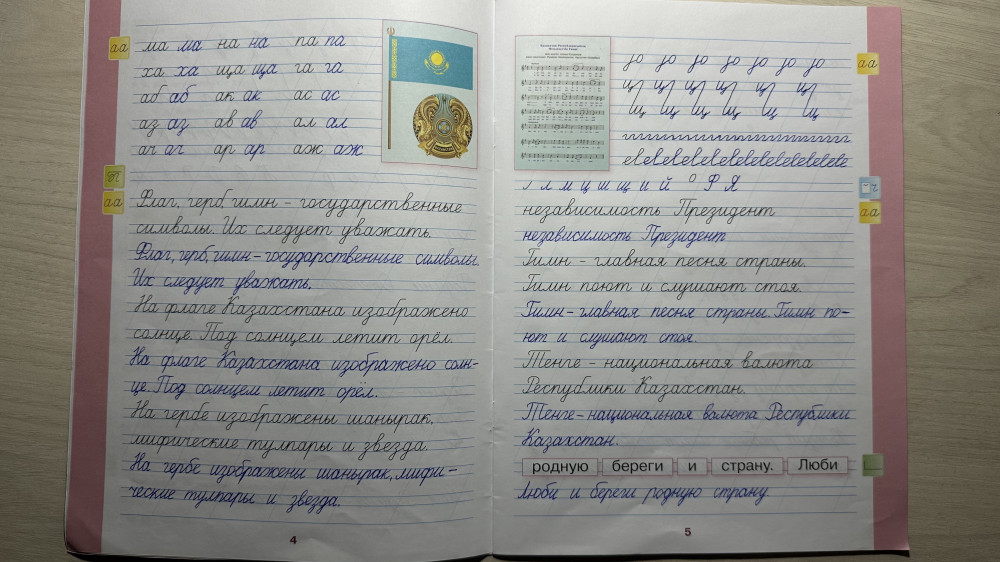 аа
ма ма на на па па
ха ха ща ща га га
аб аб ак ак ас ас
аз аз ав ав ал ал
ач ач ар ар аж аж
аа
Флаг, герб, гимн - государственные
символы. Их следует уважать.
Флаг, герб, гимн - государственные символы.
Их следует уважать.
На флаге Казахстана изображено
солнце. Под солнцем летит орёл.
На флаге Казахстана изображено солн-
це. Под солнцем летит орёл.
На гербе изображены шанырак,
мифические тулпары и звезда.
На гербе изображены шанырак, мифи-
ческие тулпары и звезда.
4
аа
л м ц ш щ и й О Ф Я
аа
независимость Президент
независимость Президент
Гимн - главная песня страны.
Гимн поют и слушают стоя.
Гимн - главная песня страны. Гимн по-
ют и слушают стоя.
Тенге - национальная валюта
Республики Казахстан.
Тенге - национальная валюта Республики
Казахстан.
родную береги и страну. Люби
Люби и береги родную страну
5